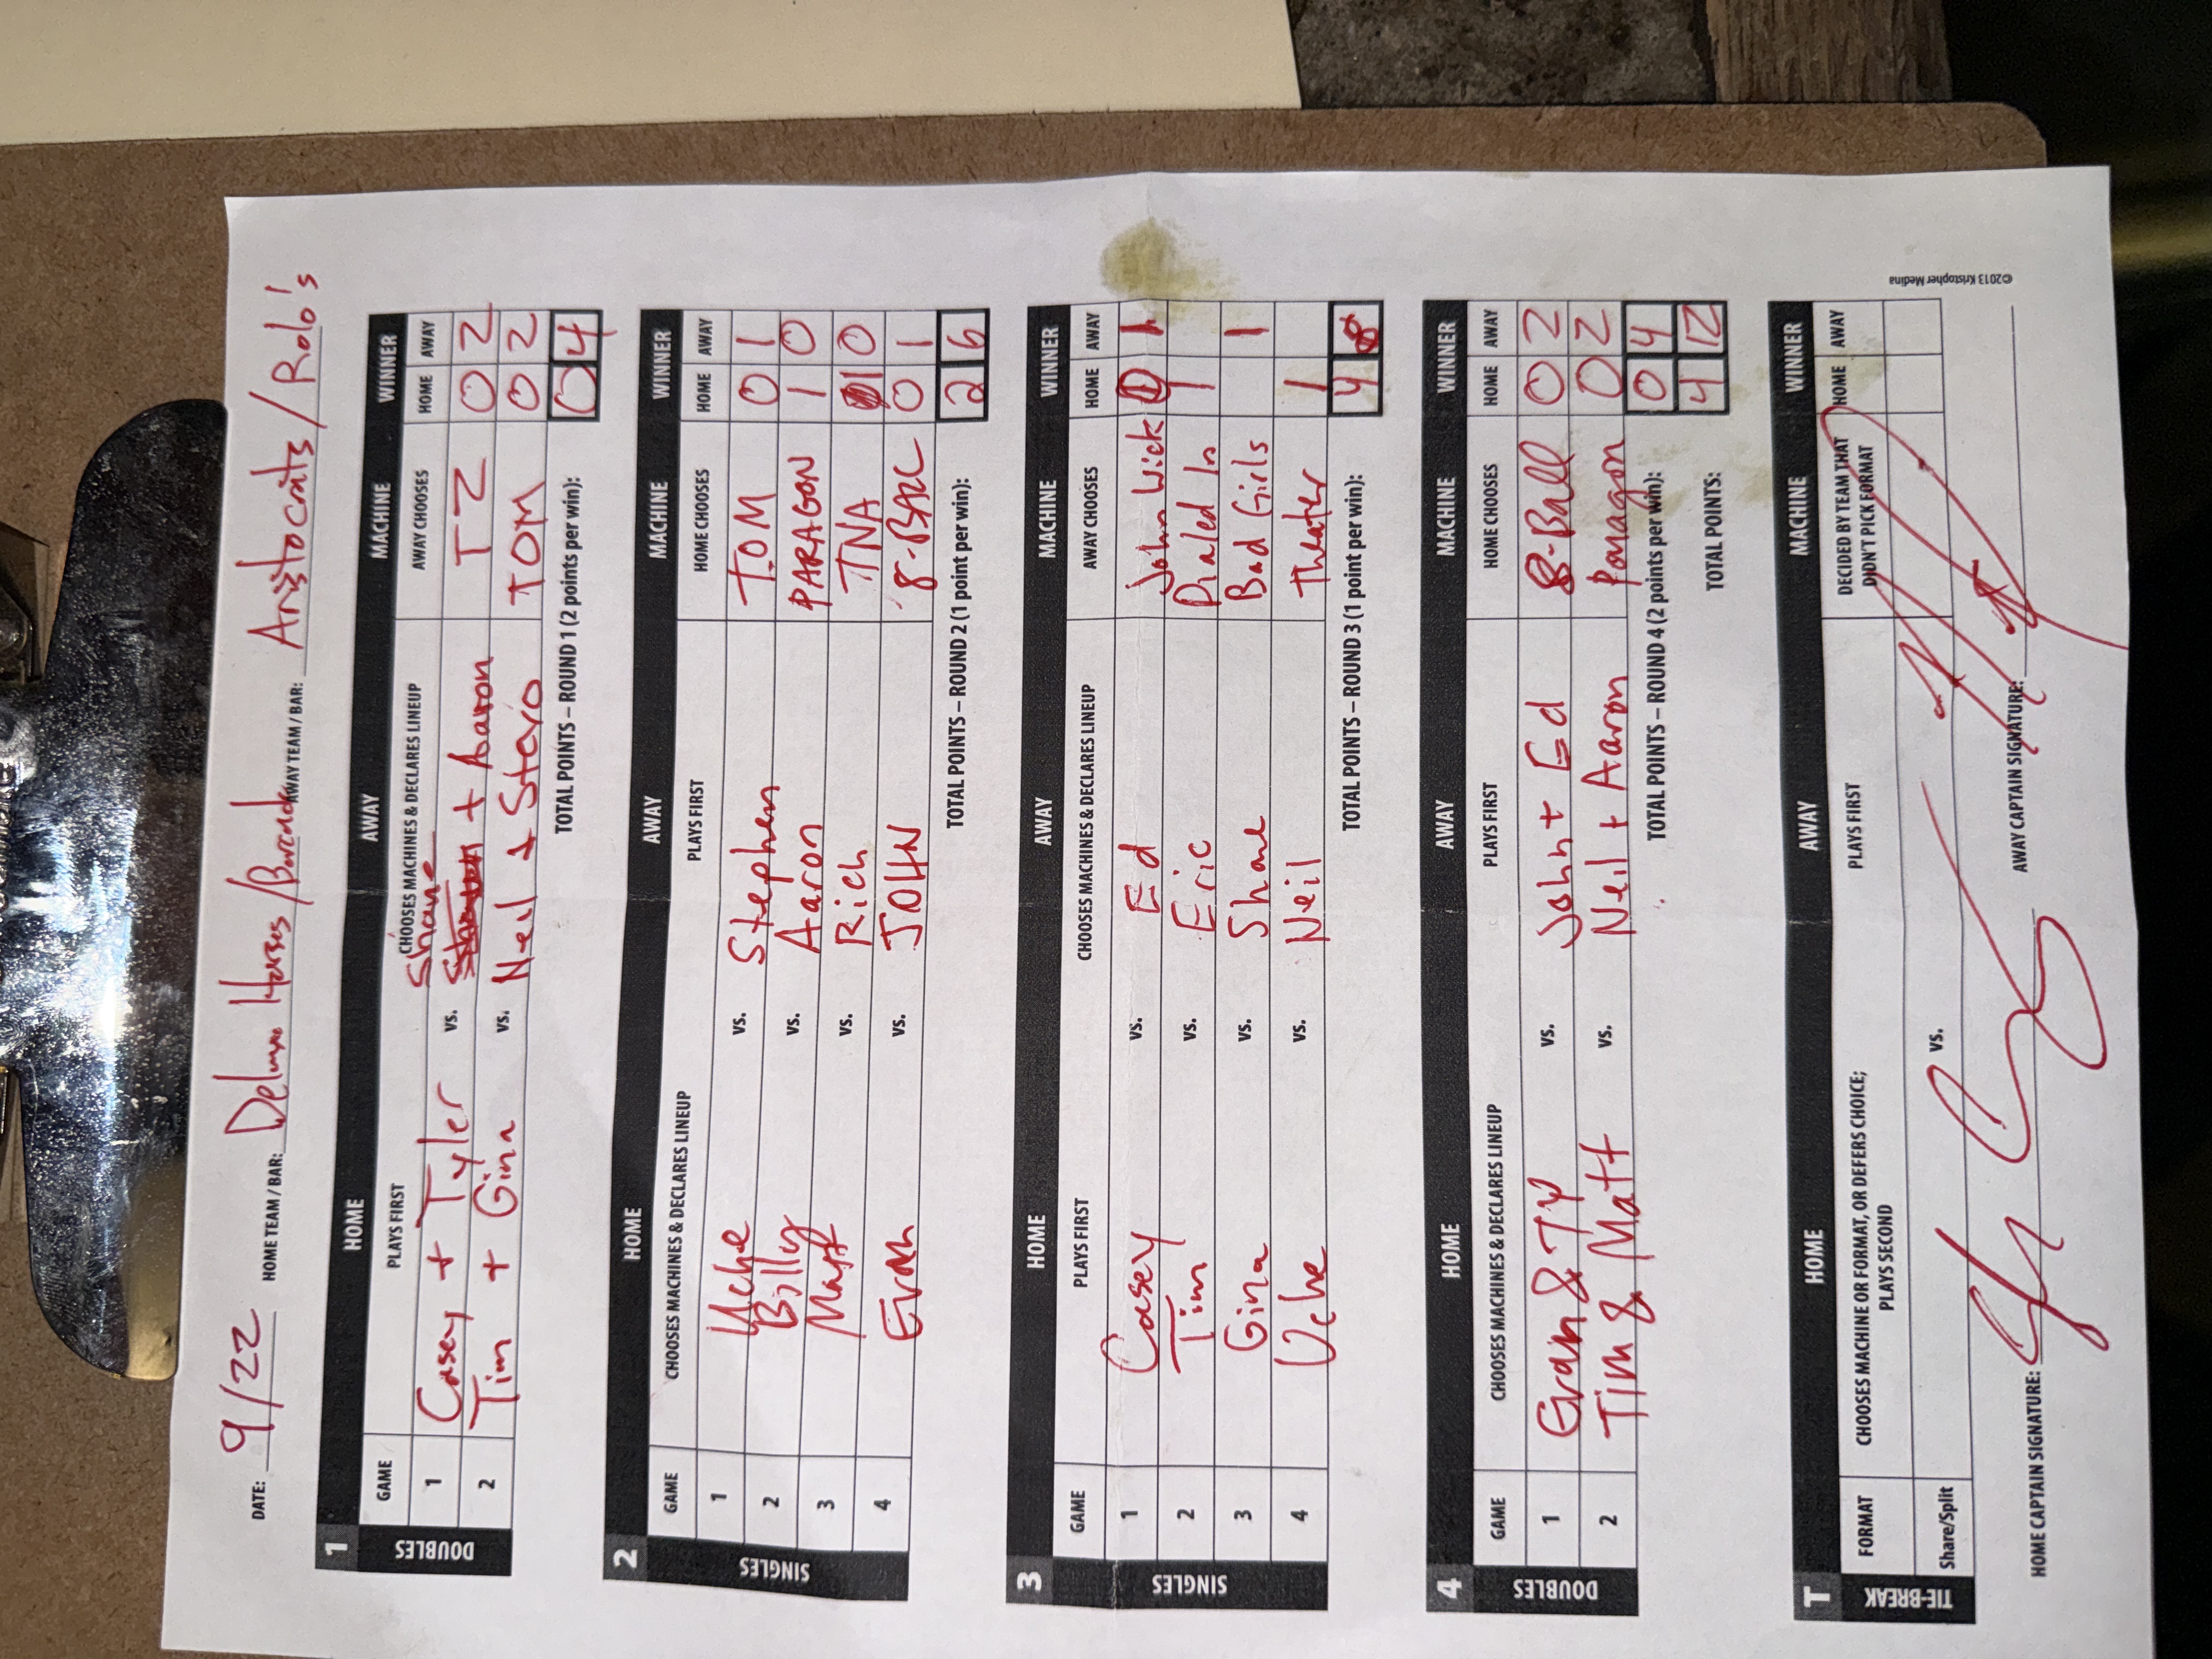 DATE: 9/22 HOME TEAM / BAR: Deluxe Horses/Barcade AWAY TEAM / BAR: Aristocrats / Rolo's
1 HOME AWAY MACHINE WINNER
GAME PLAYS FIRST CHOOSES MACHINES & DECLARES LINEUP AWAY CHOOSES HOME AWAY
DOUBLES
Shane
1 Casey + Tyler vs. + Aaron TZ 0 2
2 Tim + Gina vs. Neil + Stevo TOM 0 2
TOTAL POINTS – ROUND 1 (2 points per win): 0 4
2 HOME AWAY MACHINE WINNER
GAME CHOOSES MACHINES & DECLARES LINEUP PLAYS FIRST HOME CHOOSES HOME AWAY
SINGLES
1 Uche vs. Stephen TOM 0 1
2 Billy vs. Aaron PARAGON 1 0
3 Matt vs. Rich TNA 1 0
4 Evan vs. JOHN 8-BALL 0 1
TOTAL POINTS – ROUND 2 (1 point per win): 2 6
3 HOME AWAY MACHINE WINNER
GAME PLAYS FIRST CHOOSES MACHINES & DECLARES LINEUP AWAY CHOOSES HOME AWAY
SINGLES
1 Casey vs. Ed John Wick 0 1
2 Tim vs. Eric Dialed In 1
3 Gina vs. Shane Bad Girls 1
4 Uche vs. Neil Theater 1
TOTAL POINTS – ROUND 3 (1 point per win): 4 8
4 HOME AWAY MACHINE WINNER
GAME CHOOSES MACHINES & DECLARES LINEUP PLAYS FIRST HOME CHOOSES HOME AWAY
DOUBLES
1 Evan & Ty vs. John + Ed 8-Ball 0 2
2 Tim & Matt vs. Neil + Aaron Paragon 0 2
TOTAL POINTS – ROUND 4 (2 points per win): 0 4
TOTAL POINTS: 4 12
T HOME AWAY MACHINE WINNER
FORMAT CHOOSES MACHINE OR FORMAT, OR DEFERS CHOICE; PLAYS FIRST DECIDED BY TEAM THAT HOME AWAY
PLAYS SECOND DIDN'T PICK FORMAT
TIE-BREAK
Share/Split vs.
HOME CAPTAIN SIGNATURE: AWAY CAPTAIN SIGNATURE:
©2013 Kristopher Medina